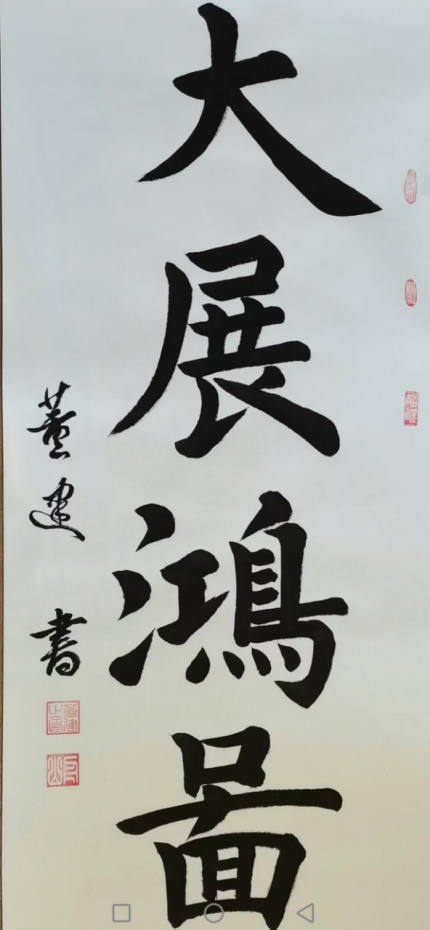 大展鴻啚
董建書